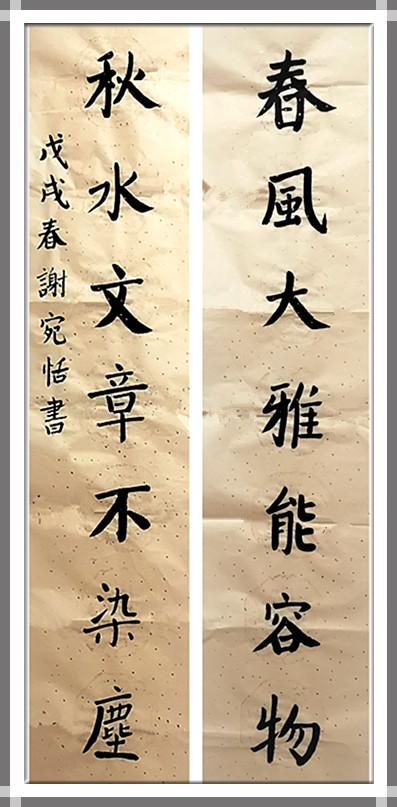 春風大雅能容物
秋水文章不染塵
戊戌春謝宛恬書